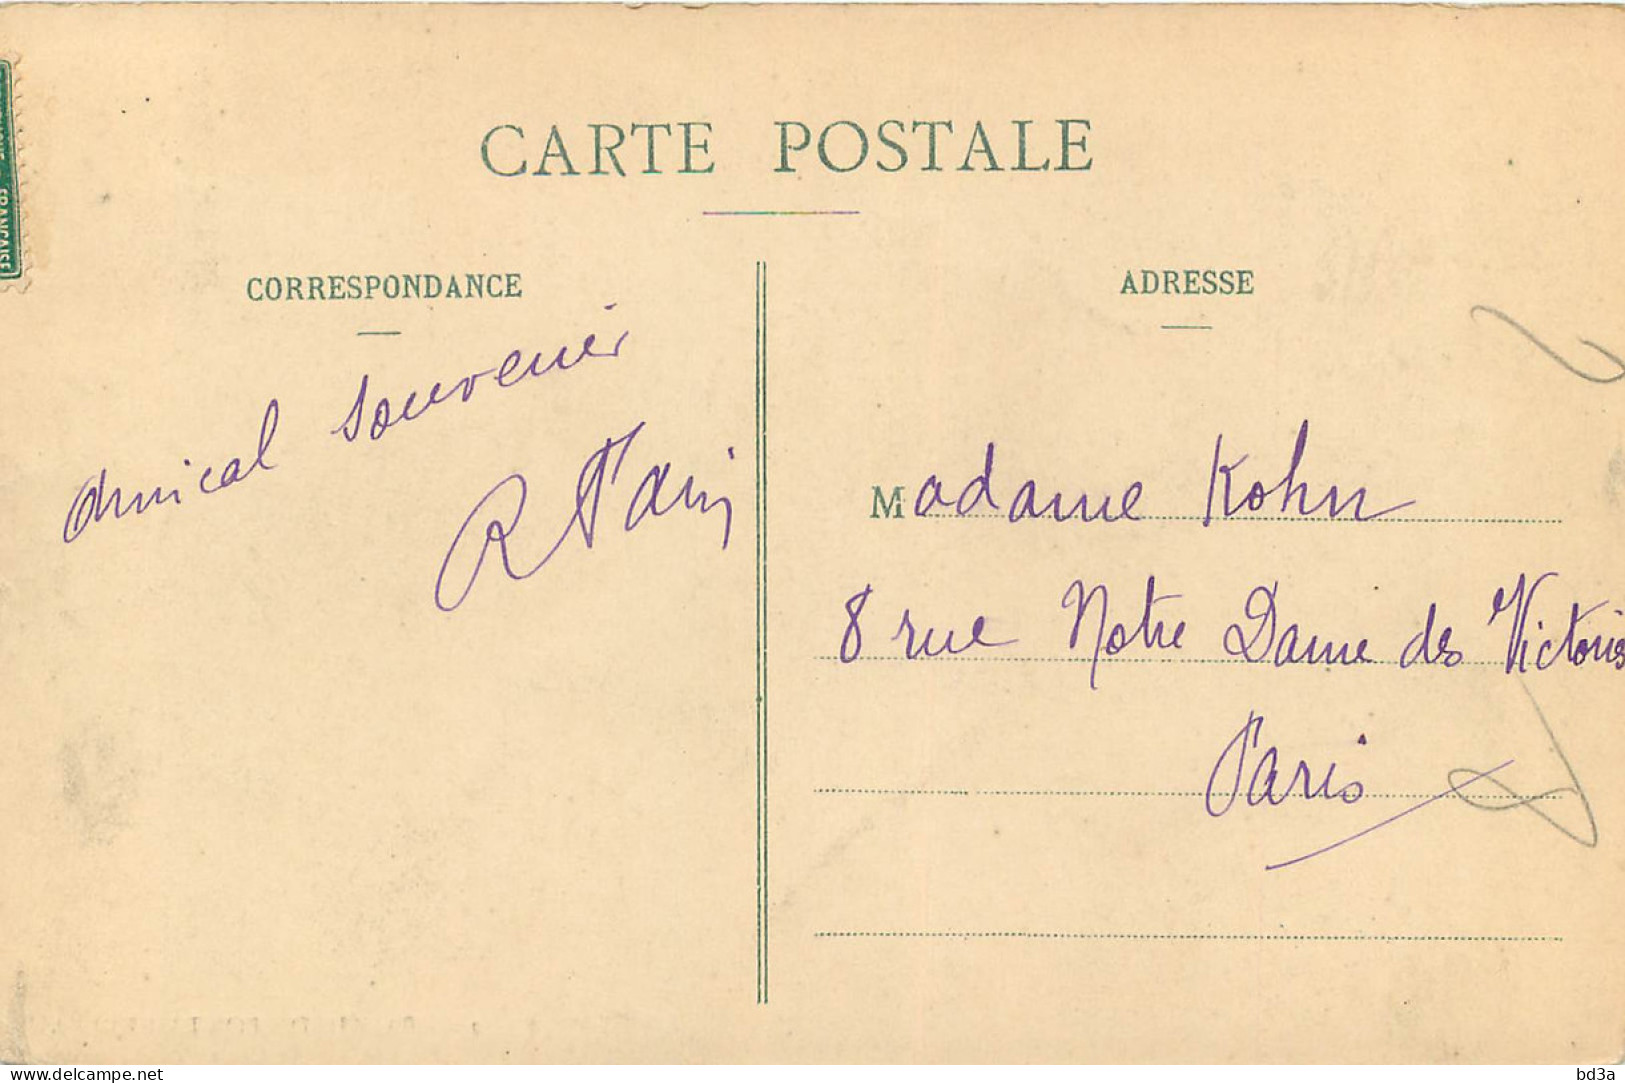 CARTE POSTALE
CORRESPONDANCE
ADRESSE
amical souvenir
R
Madame Kohn
8 rue Notre Dame des Victoires
Paris
FRANÇAISE
delcampe.net
bd3a